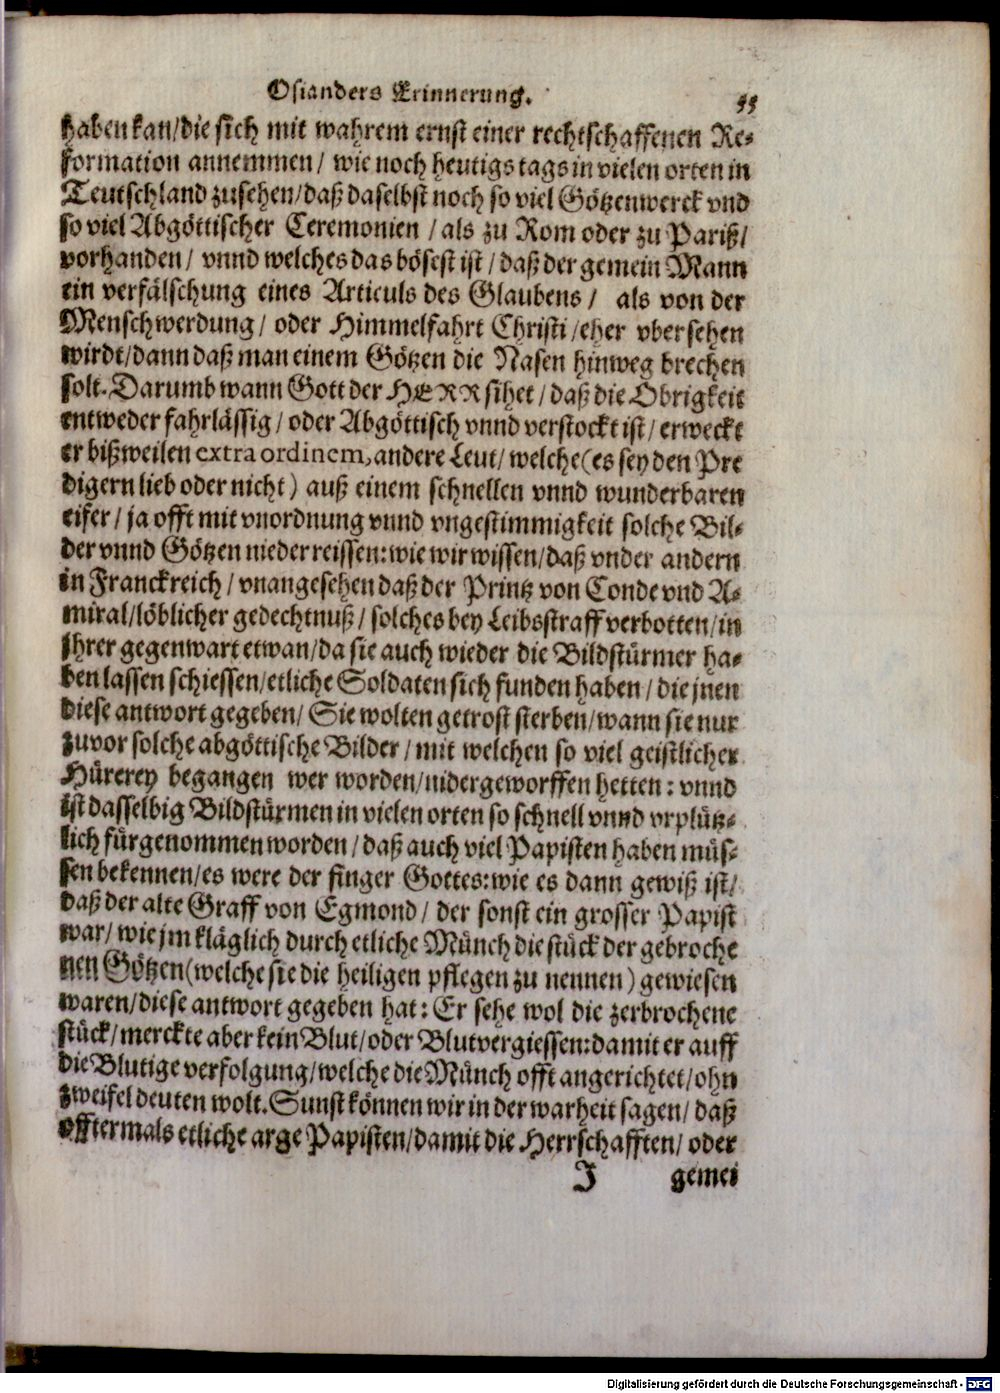 Osianders Erinnerung.
55
haben kan/die sich mit wahrem ernst einer rechtschaffenen Re-
formation annemmen/ wie noch heutigs tags in vielen orten in
Teutschland zusehen/daß daselbst noch so viel Götzenwerck vnd
so viel Abgöttischer Ceremonien /als zu Rom oder zu Pariß/
vorhanden/ vnnd welches das bösest ist/daß der gemein Mann
ein verfälschung eines Articuls des Glaubens/ als von der
Menschwerdung/ oder Himmelfahrt Christi/eher vbersehen
wirdt/dann daß man einem Götzen die Nasen hinweg brechen
solt. Darumb wann Gott der HERR sihet/daß die Obrigkeit
entweder fahrlässig/oder Abgöttisch vnnd verstockt ist/erweckt
er bißweilen extra ordinem, andere Leut/welche(es sey den Pre
digern lieb oder nicht) auß einem schnellen vnnd wunderbaren
eifer/ja offt mit vnordnung vnnd vngestimmigkeit solche Bil-
der vnnd Götzen nieder reissen:wie wir wissen/daß vnder andern
in Franckreich/vnangesehen daß der Printz von Conde vnd A-
miral/löblicher gedechtnuß/solches bey Leibsstraff verbotten/in
jhrer gegenwart etwan/da sie auch wieder die Bildstürmer ha-
ben lassen schiessen/etliche Soldaten sich funden haben/die jnen
diese antwort gegeben/Sie wolten getrost sterben/wann sie nur
zuvor solche abgöttische Bilder/mit welchen so viel geistlicher
Hürerey begangen wer worden/nidergeworffen hetten: vnnd
ist dasselbig Bildstürmen in vielen orten so schnell vnnd vrplütz-
lich fürgenommen worden/daß auch viel Papisten haben müs-
sen bekennen/es were der finger Gottes:wie es dann gewiß ist/
daß der alte Graff von Egmond/der sonst ein grosser Papist
war/wie jm kläglich durch etliche Münch die stück der gebroche
nen Götzen(welche sie die heiligen pflegen zu nennen)gewiesen
waren/diese antwort gegeben hat: Er sehe wol die zerbrochene
stück/merckte aber kein Blut/oder Blutvergiessen:damit er auff
die Blutige verfolgung/welche die Münch offt angerichtet/ohn
zweifel deuten wolt. Sunst können wir in der warheit sagen/daß
offtermals etliche arge Papisten/damit die Herrschafften/oder
J gemei
Digitalisierung gefördert durch die Deutsche Forschungsgemeinschaft - DFG